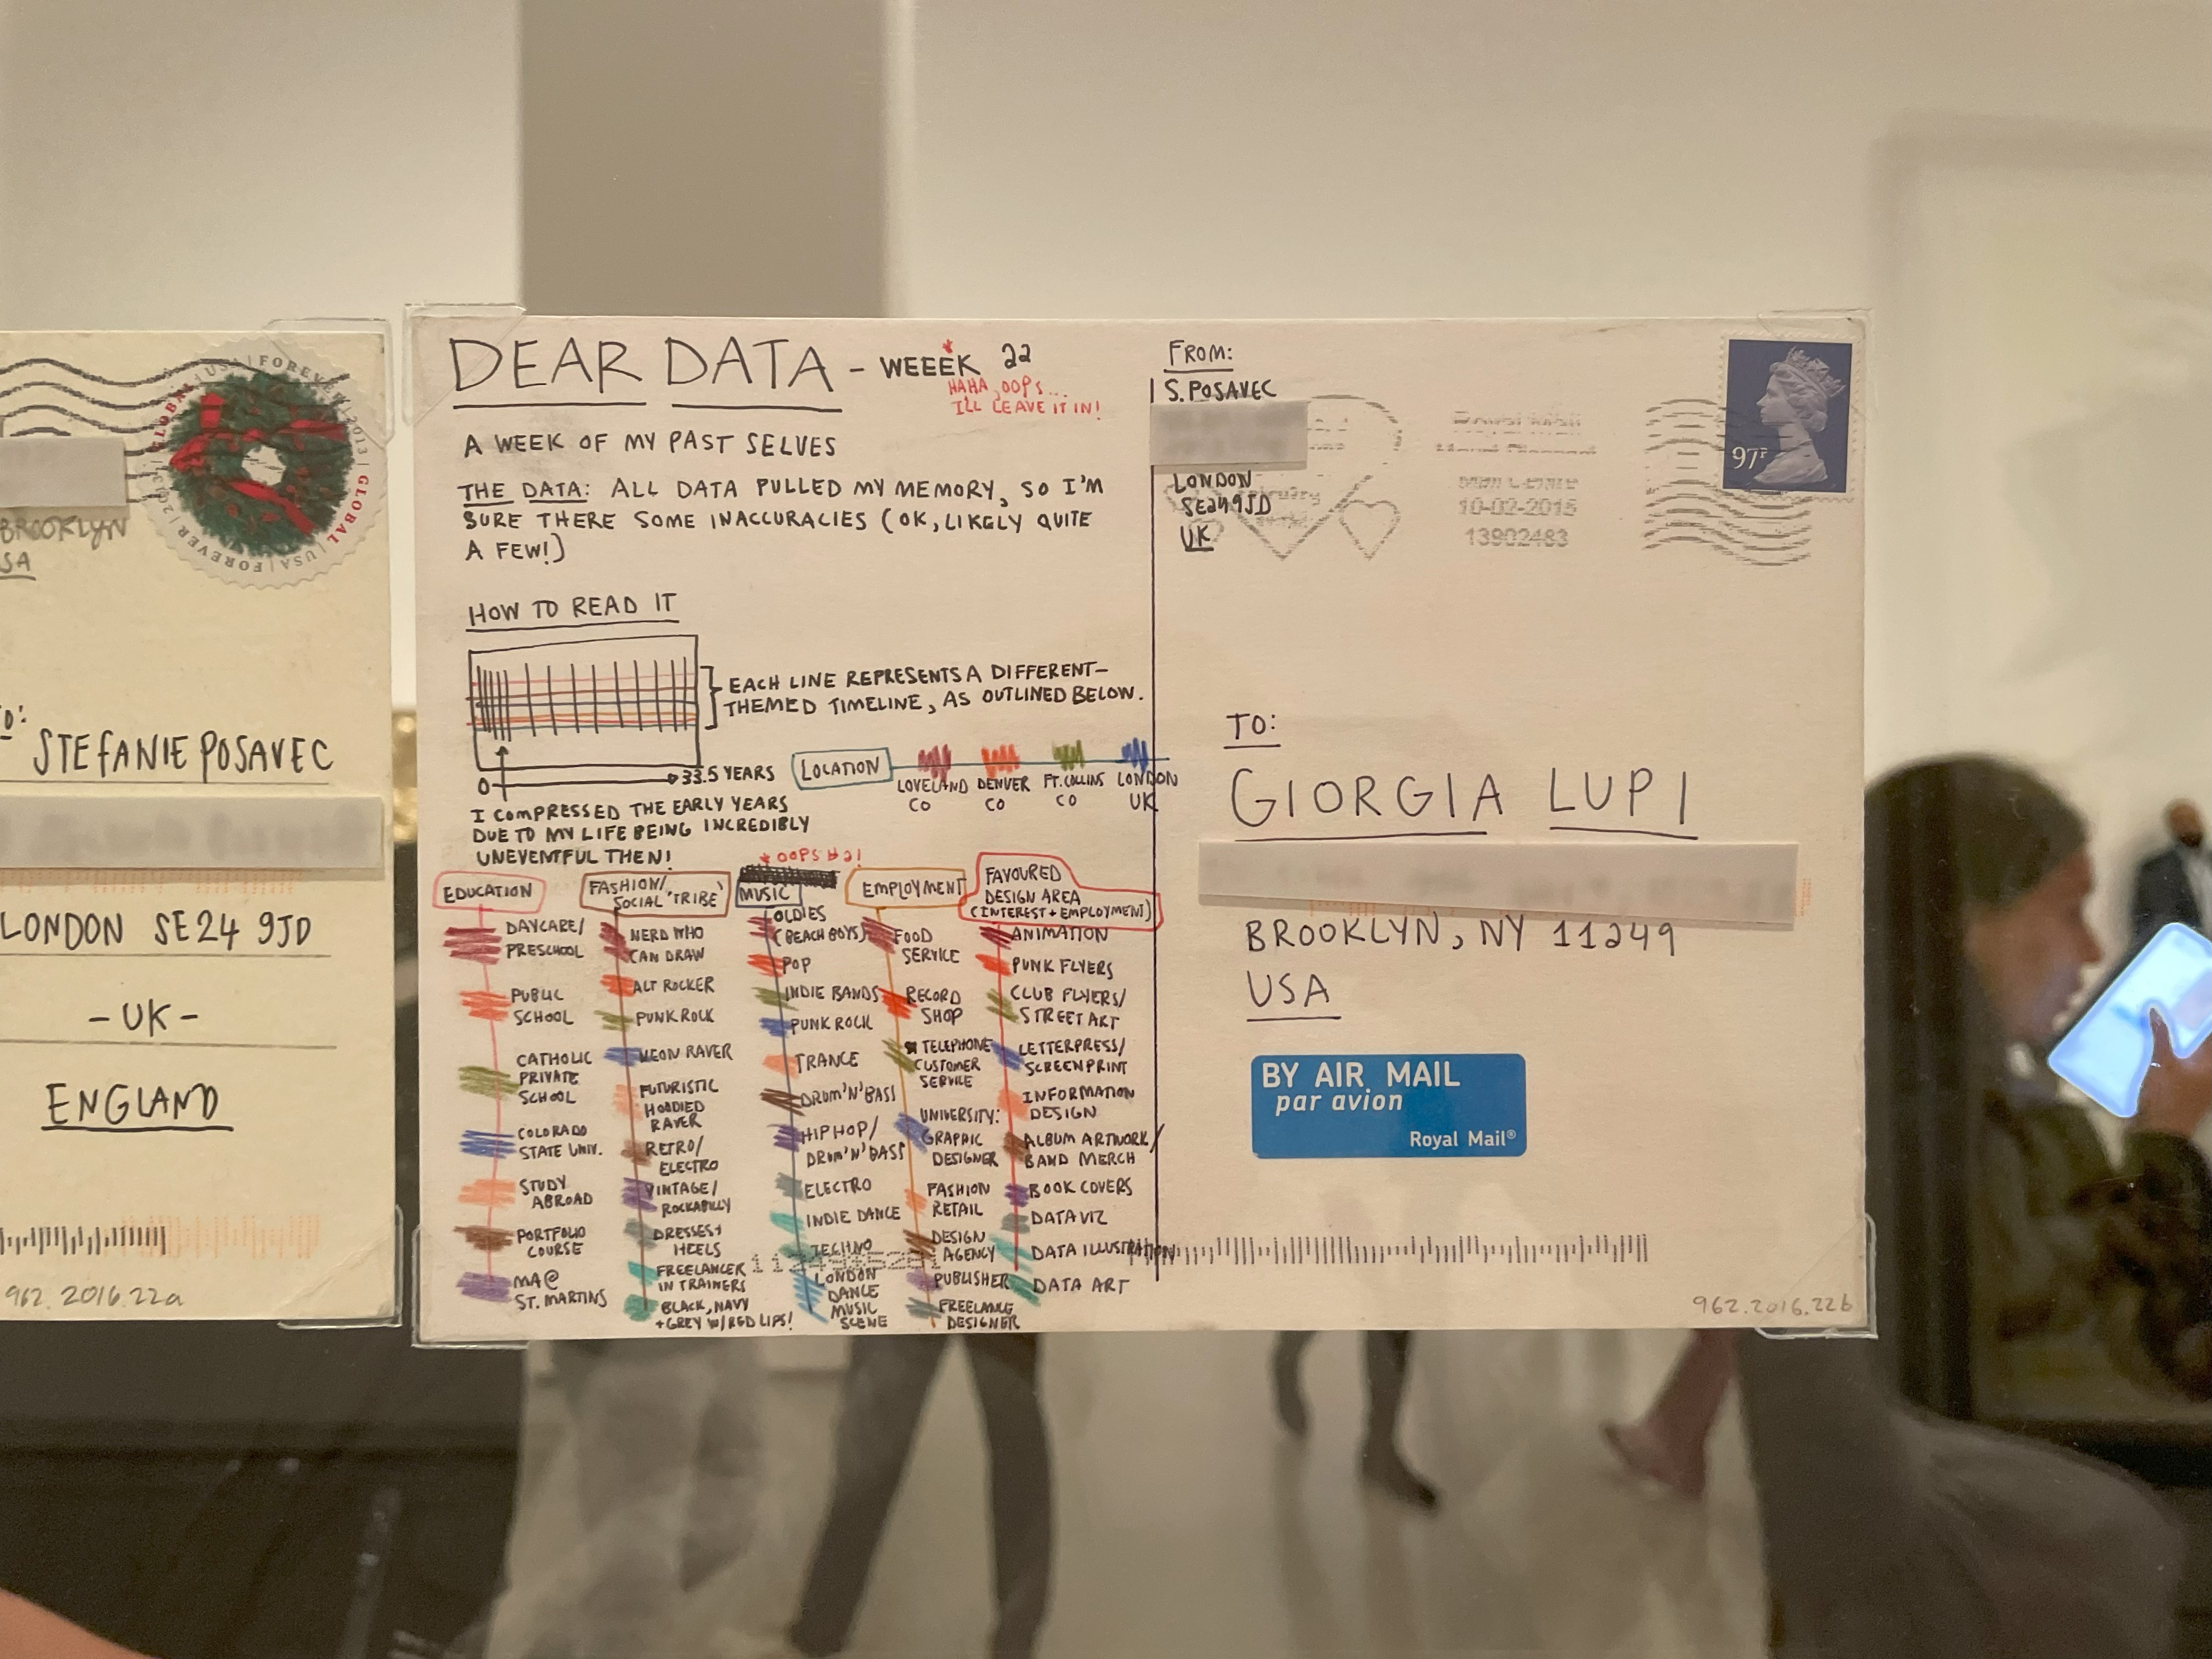 GLOBAL | USA | FOREVER | 2013 | GLOBAL | USA | FOREVER | 2013
BROOKLYN
SA
STEFANIE POSAVEC
LONDON SE24 9JD
- UK -
ENGLAND
962.2016.22a
DEAR DATA - WEEEK 22
HAHA, OOPS...
I'LL LEAVE IT IN!
A WEEK OF MY PAST SELVES
THE DATA: ALL DATA PULLED MY MEMORY, SO I'M
SURE THERE SOME INACCURACIES (OK, LIKELY QUITE
A FEW!)
HOW TO READ IT
EACH LINE REPRESENTS A DIFFERENT-
THEMED TIMELINE, AS OUTLINED BELOW.
0
33.5 YEARS
I COMPRESSED THE EARLY YEARS
DUE TO MY LIFE BEING INCREDIBLY
UNEVENTFUL THEN!
LOCATION
LOVELAND
CO
DENVER
CO
FT. COLLINS
CO
LONDON
UK
EDUCATION
DAYCARE/
PRESCHOOL
PUBLIC
SCHOOL
CATHOLIC
PRIVATE
SCHOOL
COLORADO
STATE UNIV.
STUDY
ABROAD
PORTFOLIO
COURSE
MA@
ST. MARTINS
FASHION/
SOCIAL 'TRIBE'
NERD WHO
CAN DRAW
ALT ROCKER
PUNK ROCK
NEON RAVER
FUTURISTIC
HOODIED
RAVER
RETRO/
ELECTRO
VINTAGE/
ROCKABILLY
DRESSES+
HEELS
FREELANCER
IN TRAINERS
BLACK, NAVY
+GREY W/RED LIPS!
OOPS #2!
MUSIC
OLDIES
(BEACH BOYS)
POP
INDIE BANDS
PUNK ROCK
TRANCE
DRUM'N'BASS
HIP HOP/
DRUM'N'BASS
ELECTRO
INDIE DANCE
TECHNO
LONDON
DANCE
MUSIC
SCENE
EMPLOYMENT
FOOD
SERVICE
RECORD
SHOP
TELEPHONE
CUSTOMER
SERVICE
UNIVERSITY:
GRAPHIC
DESIGNER
FASHION
RETAIL
DESIGN
AGENCY
PUBLISHER
FREELANCE
DESIGNER
FAVOURED
DESIGN AREA
(INTEREST + EMPLOYMENT)
ANIMATION
PUNK FLYERS
CLUB FLYERS/
STREET ART
LETTERPRESS/
SCREENPRINT
INFORMATION
DESIGN
ALBUM ARTWORK/
BAND MERCH
BOOK COVERS
DATA VIZ
DATA ILLUSTRATION
DATA ART
FROM:
S. POSAVEC
LONDON
SE249JD
UK
Royal Mail
Mail Centre
10-02-2015
13902483
97P
TO:
GIORGIA LUPI
BROOKLYN, NY 11249
USA
BY AIR MAIL
par avion
Royal Mail®
962.2016.22b